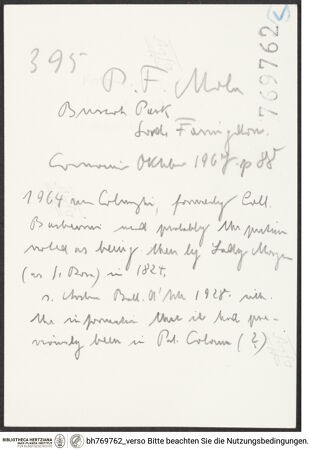 395
769762
P. F. Mola
Buscot Park
Lord Faringdon.
Connoisseur Oktober 1967 p 88
1964 von Colnaghi, formerly Coll.
Barberini and probably the picture
noted as being then by Lady Morgan
(as S. Rosa) in 1825.
s. Ball. 1928. with
the information that it had pre-
viously been in Pal. Colonna (?)
BIBLIOTHECA HERTZIANA
MAX-PLANCK-INSTITUT
FÜR KUNSTGESCHICHTE
bh769762_verso Bitte beachten Sie die Nutzungsbedingungen.